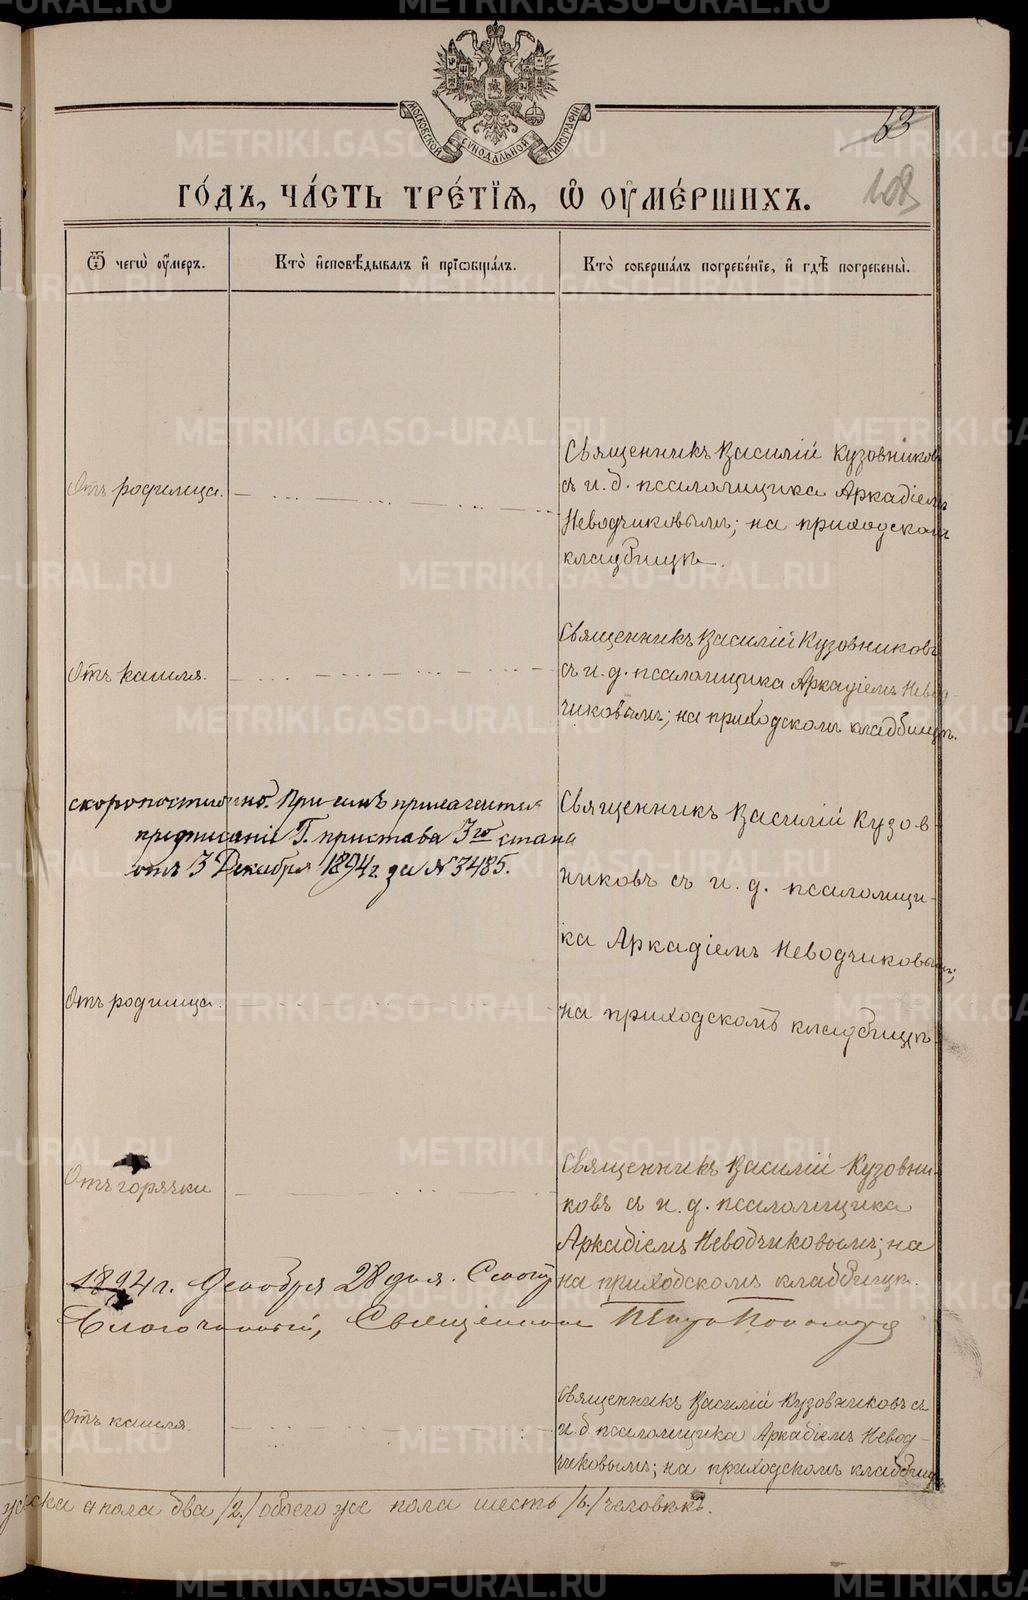 МОСКОВСКОЙ СѴНОДАЛЬНОЙ ТИПОГРАФІИ
63
108
ГО́ДЪ, ЧА́СТЬ ТРЕ́ТІѦ, Ѡ ОУ҆МЕ́РШИХЪ.
Ѿ чегѡ̀ оу҆́меръ.
Кто̀ и҆сповѣ́дывалъ и҆ прїѡбща́лъ.
Кто̀ соверша́лъ погребе́нїе, и҆ гдѣ̀ погребены̀.
Отъ родимца.
Священникъ Василій Кузовниковъ
съ и. д. псаломщика Аркадіемъ
Неводчиковымъ; на приходскомъ
кладбищѣ.
Отъ кашля.
Священникъ Василій Кузовниковъ
съ и. д. псаломщика Аркадіемъ Невод-
чиковымъ; на приходскомъ кладбищѣ.
скоропостижно. При семъ прилагается
предписаніе Г. пристава 3го стана
отъ 3 Декабря 1894 г. за № 3485.
Священникъ Василій Кузов-
никовъ съ и. д. псаломщи-
ка Аркадіемъ Неводчиковымъ;
на приходскомъ кладбищѣ.
Отъ родимца.
Отъ горячки
Священникъ Василій Кузовни-
ковъ съ и. д. псаломщика
Аркадіемъ Неводчиковымъ; на
на приходскомъ кладбищѣ.
1894 г. Декабря 28 дня.
Благочинный, Священникъ Петръ
Отъ кашля
Священникъ Василій Кузовниковъ съ
и. д. псаломщика Аркадіемъ Невод-
чиковымъ; на приходскомъ кладбищѣ
пола два /2/ обоего же пола шесть /6/ человѣкъ.
METRIKI.GASO-URAL.RU